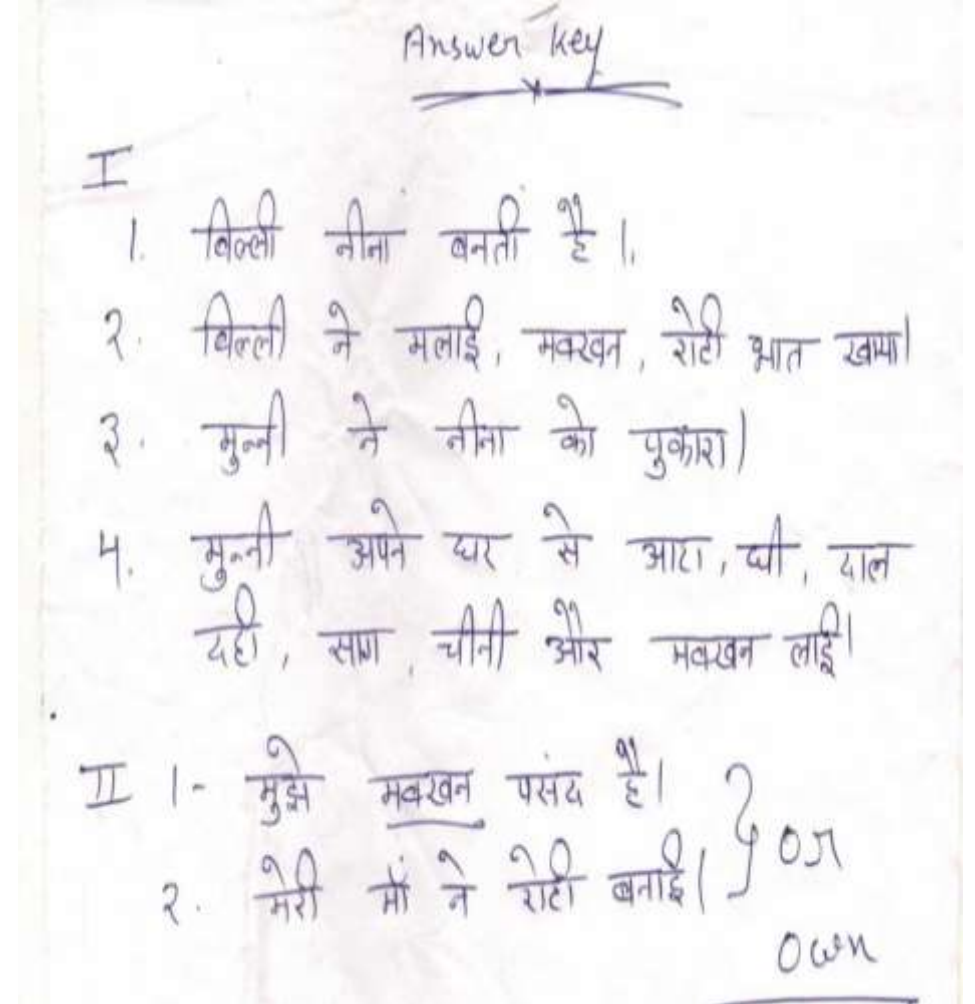 Answer Key
I
1. बिल्ली नीना बनती है।
२. बिल्ली ने मलाई, मक्खन, रोटी भात खाया।
३. मुन्नी ने नीना को पुकारा।
4. मुन्नी अपने घर से आटा, घी, दाल
दही, साग, चीनी और मक्खन लाई।
II 1- मुझे मक्खन पसंद है।
२. मेरी माँ ने रोटी बनाई। } or
own